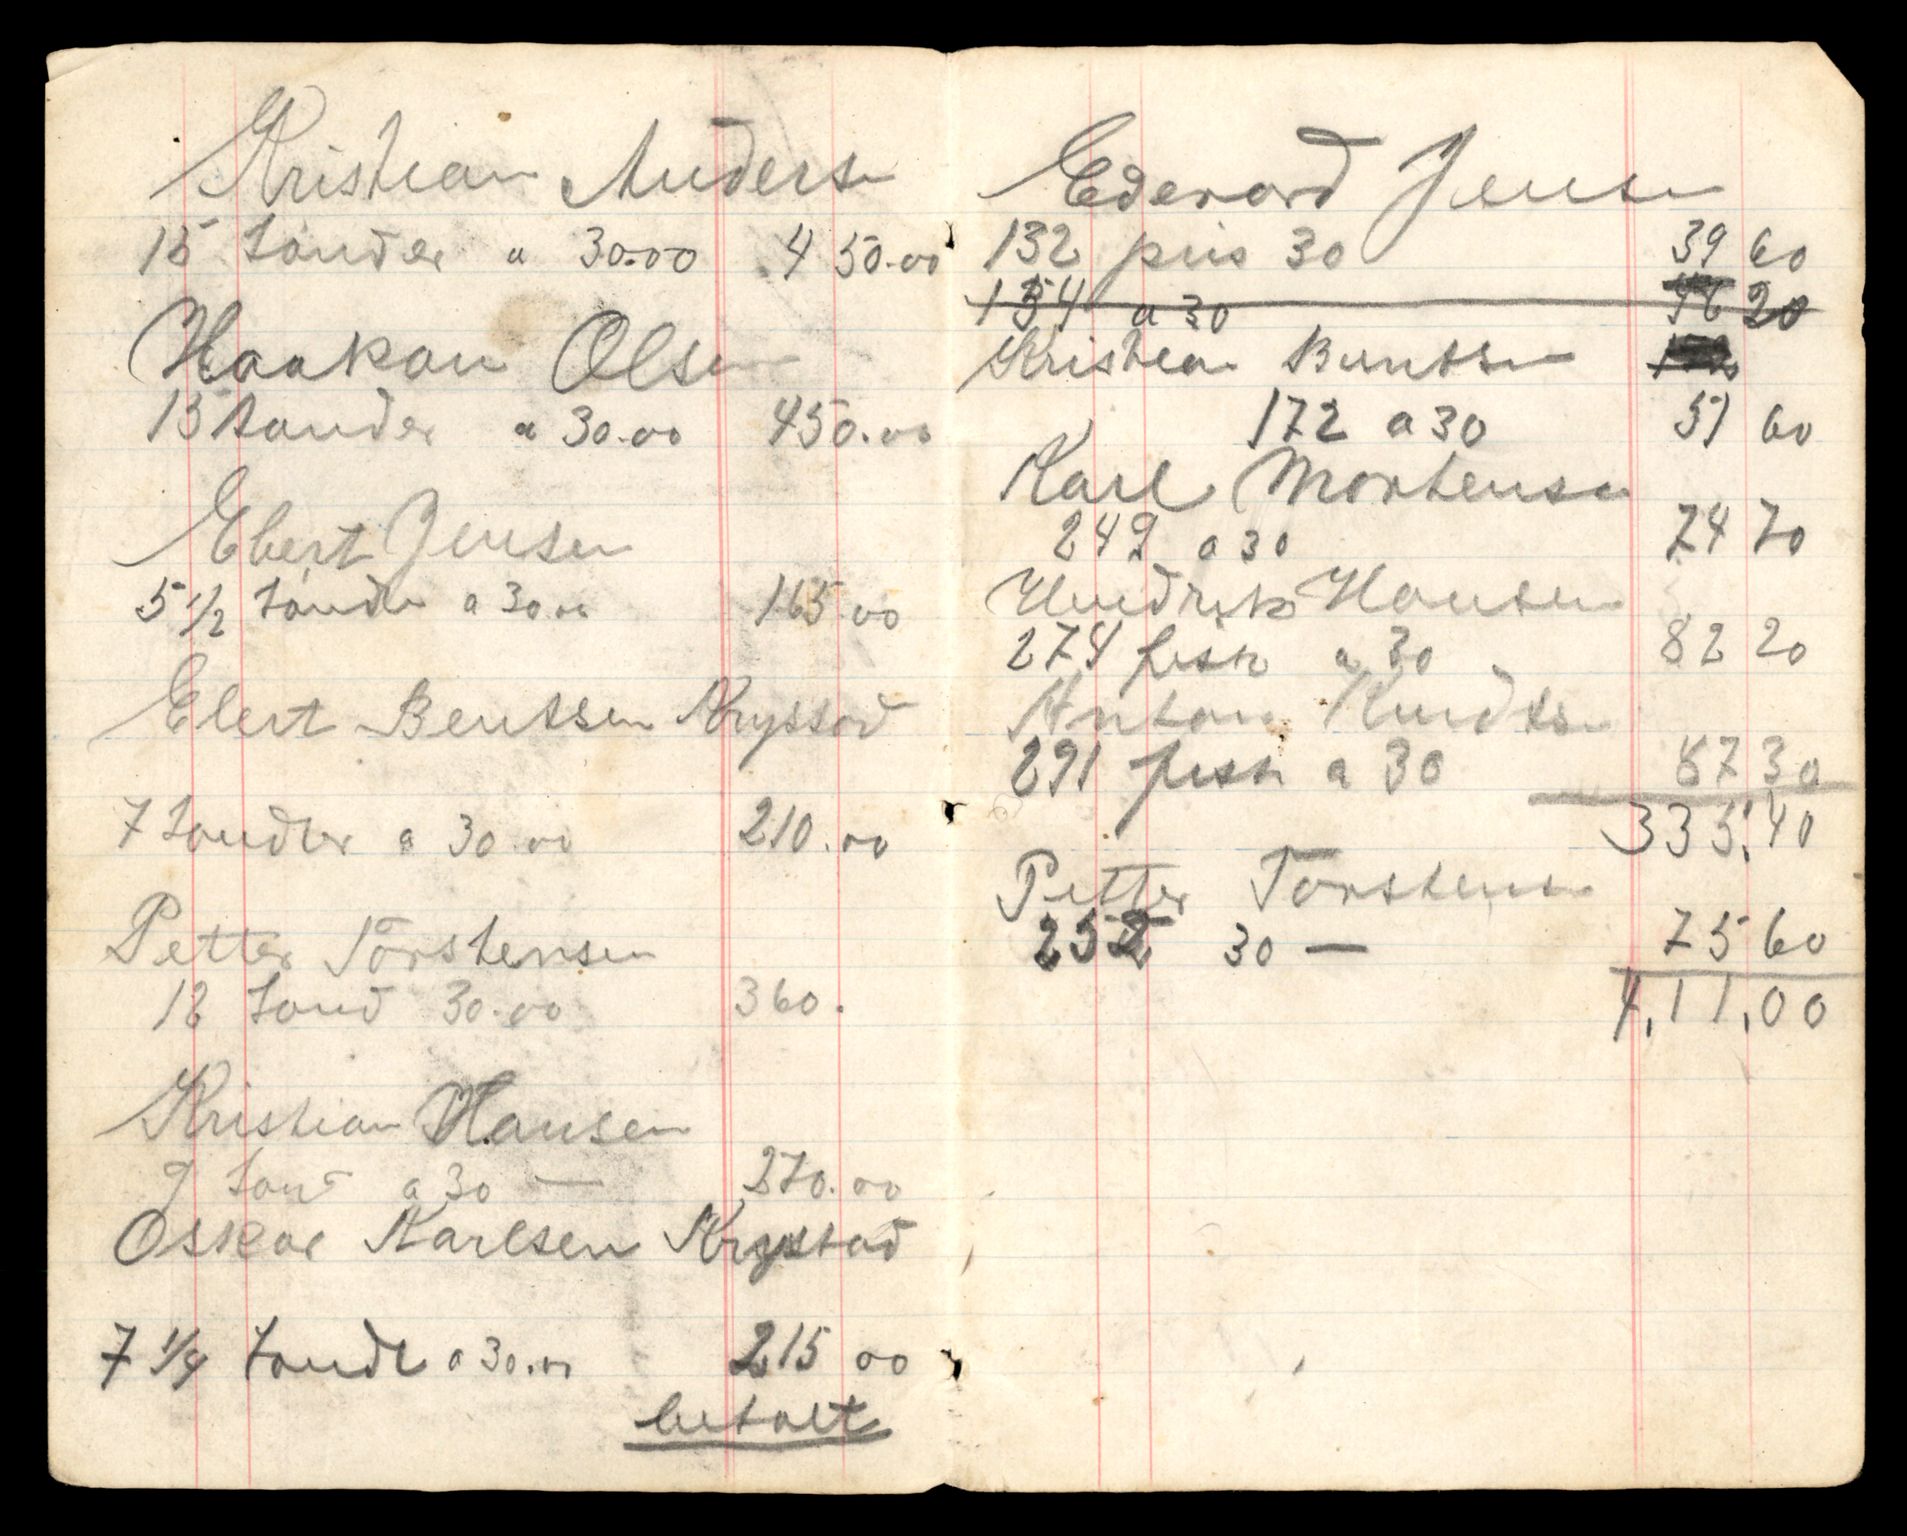 Kristian Andersn
15 tønder a 30.00 450.00
Haakon Olsen
15 tønder a 30.00 450.00
Ebert Jensen
5 1/2 tønde a 30.00 165 00
Elert Bentssen Krystad
7 tønder a 30.00 210.00
Petter Torstensen
12 tønd 30.00 360.
Kristian Hansen
9 tønd a 30 — 270.00
Oskar Karlsen Krystad
7 1/4 tønde a 30.00 215 00
betalt
Edevard Jensn
132 pris 30 39 60
154 a 30 46 20
Kristian Buntsen
172 a 30 51 60
Karl Mortensen
249 a 30 74 70
Hendrik Hansen
274 fisk a 30 82 20
Anton Knudsen
291 fisk a 30 87 30
335,40
Petter Torstensn
252 30 — 75 60
4,11,00